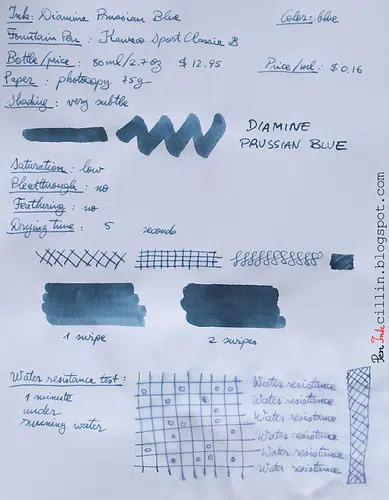 Ink: Diamine Prussian Blue
Color: blue
Fountain Pen: Kaweco Sport Classic B
Bottle/price: 80ml/2.7oz $12.95
Price/ml: $0.16
Paper: photocopy 75g
Shading: very subtle
DIAMINE
PRUSSIAN BLUE
Saturation: low
Bleedthrough: no
Feathering: no
Drying time: 5 seconds
1 swipe
2 swipes
Water resistance test:
1 minute
under
running water
Water resistance
Water resistance
Water resistance
Water resistance
Water resistance
Water resistance
Pen Ink cillin.blogspot.com